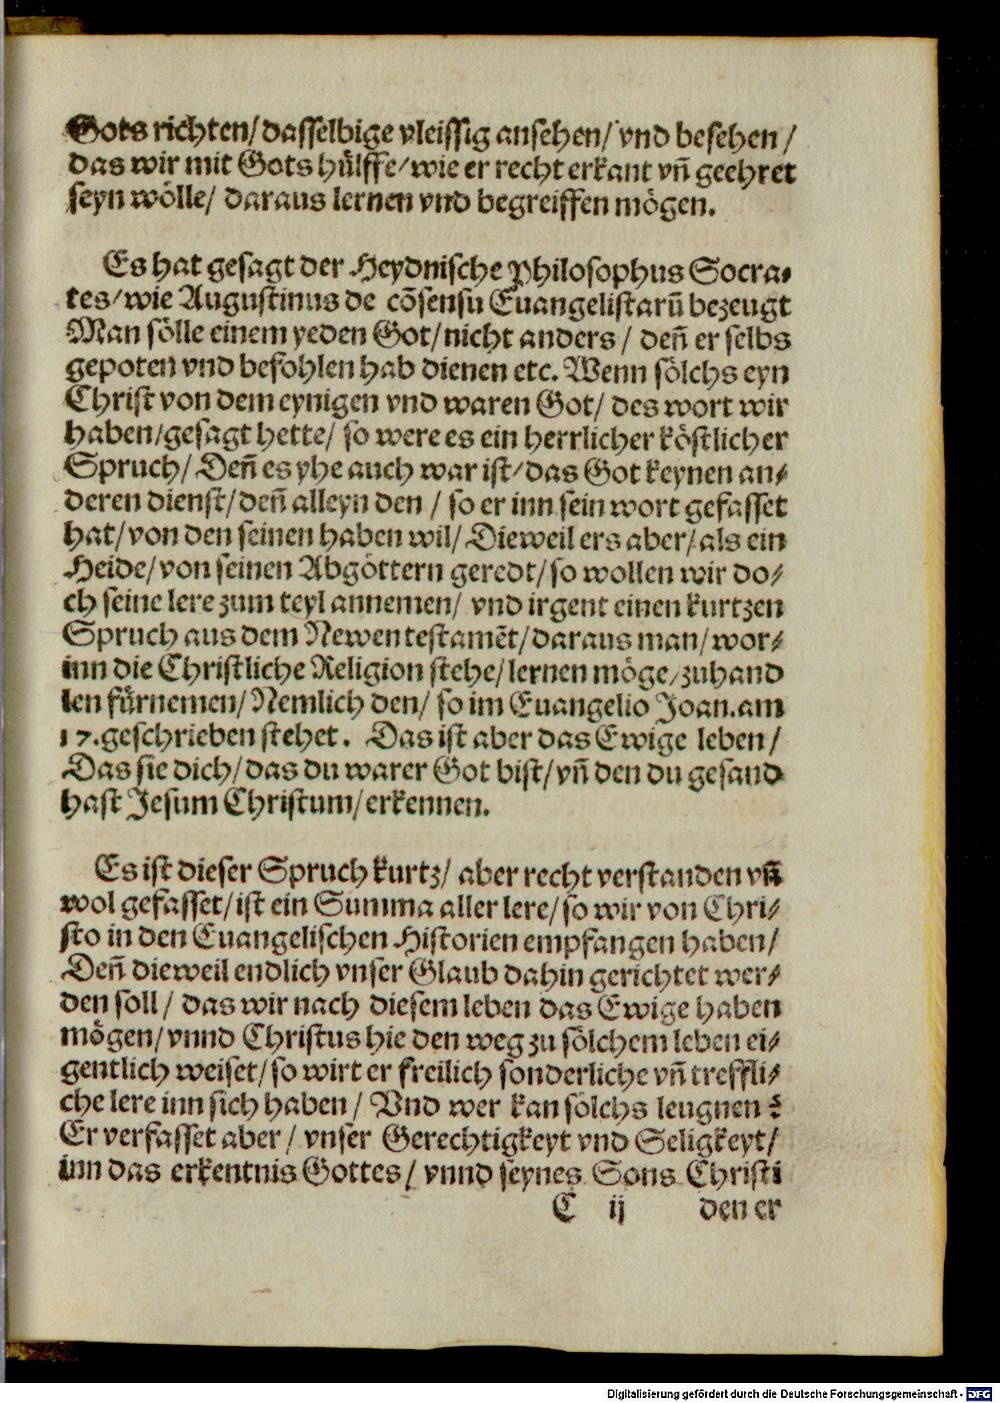 Gots richten/ dasselbige vleissig ansehen/ vnd besehen /
das wir mit Gots hůlffe/ wie er recht erkant vñ geehret
seyn wölle/ daraus lernen vnd begreiffen mögen.
Es hat gesagt der Heydnische Philosophus Socra-
tes/ wie Augustinus de cõsensu Euangelistarũ bezeugt
Man sölle einem yeden Got/ nicht anders / deñ er selbs
gepoten vnd befohlen hab dienen etc. Wenn sölchs eyn
Christ von dem eynigen vnd waren Got/ des wort wir
haben/ gesagt hette/ so were es ein herrlicher köstlicher
Spruch/ Deñ es yhe auch war ist/ das Got keynen an-
deren dienst/ deñ alleyn den / so er inn sein wort gefasset
hat/ von den seinen haben wil/ Dieweil ers aber/ als ein
Heide/ von seinen Abgöttern geredt/ so wollen wir do-
ch seine lere zum teyl annemen/ vnd irgent einen kurtzen
Spruch aus dem Newen testamẽt/ daraus man/ wor-
inn die Christliche Religion stehe/ lernen möge/ zuhand
len fürnemen/ Nemlich den/ so im Euangelio Joan. am
17. geschrieben stehet. Das ist aber das Ewige leben/
Das sie dich/ das du warer Got bist/ vñ den du gesand
hast Jesum Christum/ erkennen.
Es ist dieser Spruch kurtz/ aber recht verstanden vñ
wol gefasset/ ist ein Summa aller lere/ so wir von Chri-
sto in den Euangelischen Historien empfangen haben/
Deñ dieweil endlich vnser Glaub dahin gerichtet wer-
den soll / das wir nach diesem leben das Ewige haben
mögen/ vnnd Christus hie den weg zu sölchem leben ei-
gentlich weiset/ so wirt er freilich sonderliche vñ treffli-
che lere inn sich haben / Vnd wer kan sölchs leugnen ?
Er verfasset aber / vnser Gerechtigkeyt vnd Seligkeyt/
inn das erkentnis Gottes/ vnnd seynes Sons Christi
C ij den er
Digitalisierung gefördert durch die Deutsche Forschungsgemeinschaft - DFG